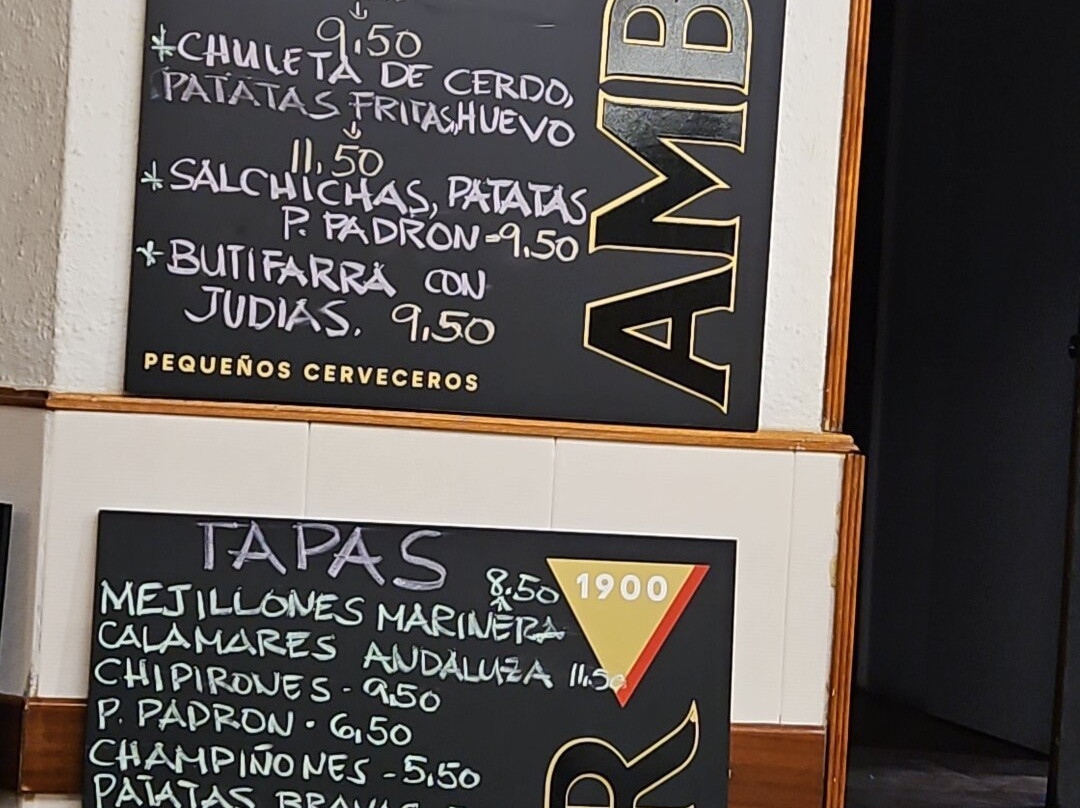 9.50
*CHULETA DE CERDO,
PATATAS FRITAS, HUEVO
11,50
*SALCHICHAS, PATATAS
P. PADRON = 9,50
*BUTIFARRA CON
JUDIAS. 9,50
PEQUEÑOS CERVECEROS
AMB
TAPAS
8.50
MEJILLONES MARINERA
CALAMARES ANDALUZA 11.50
CHIPIRONES - 9,50
P. PADRON - 6,50
CHAMPIÑONES - 5,50
PATATAS BRAVAS
1900
R